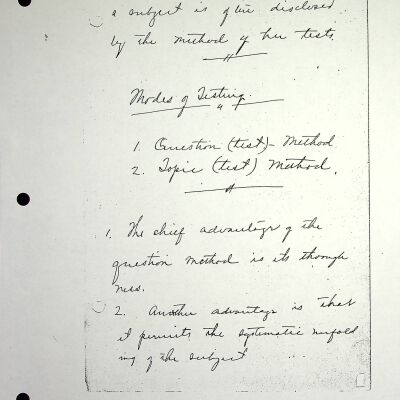 a subject is often disclosed
by the method of her tests.
Modes of Testing.
1. Question (test) - Method
2. Topic (test) Method.
1. The chief advantage of the
question method is its thorough
ness.
2. Another advantage is that
it permits the systematic unfold
ing of the subject